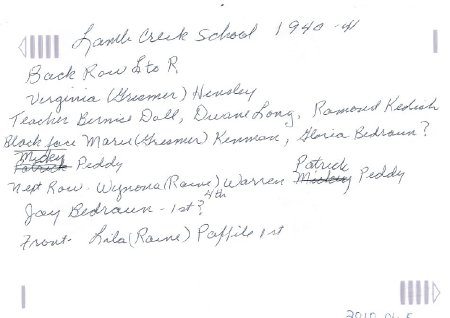 Lamb Creek School 1940-41
Back Row L to R
Virginia (Griesmer) Hensley
Teacher Bernice Dall, Duane Long, Ramond Kedish
Black face Marie (Griesmer) Kenman, Gloria Bedraun?
Mickey
Patrick Peddy
Next Row - Wynona (Raine) Warren Patrick Mickey Peddy
Jay Bedraun - 1st? 4th
Front - Lila (Raine) Paffile 1st